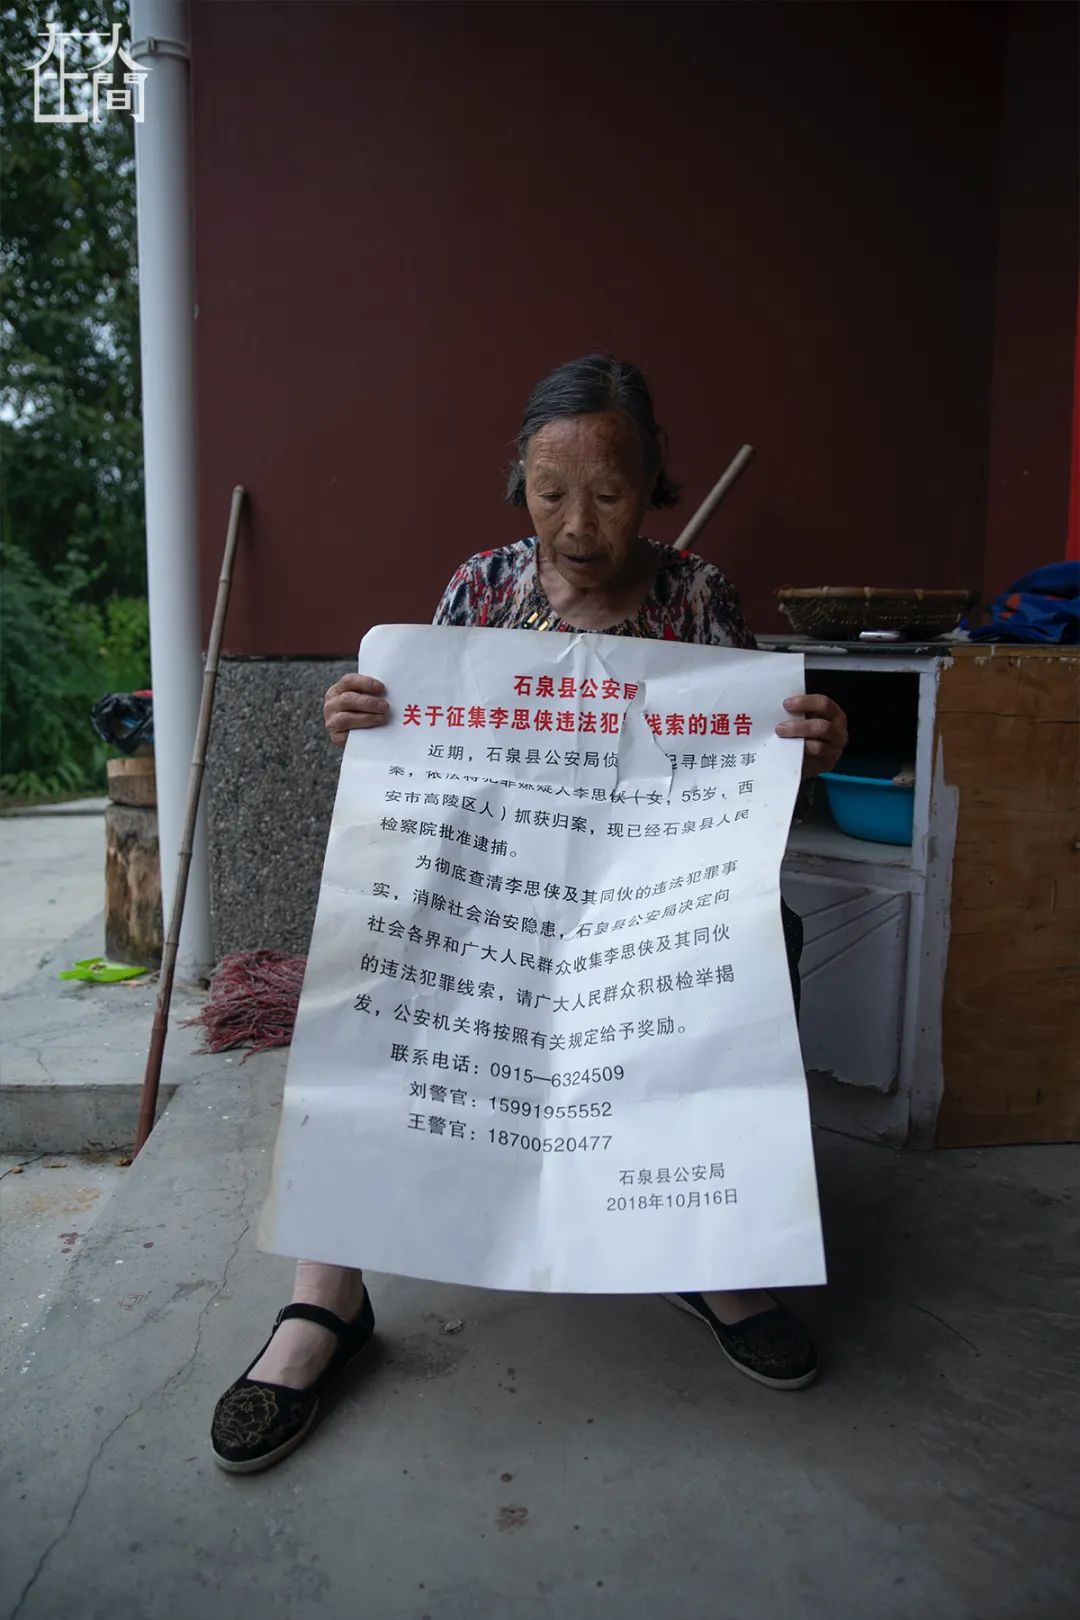 在人間
石泉县公安局
关于征集李思侠违法犯 线索的通告
近期，石泉县公安局侦 起寻衅滋事
案，依法将犯罪嫌疑人李思侠（女，55岁，西
安市高陵区人）抓获归案，现已经石泉县人民
检察院批准逮捕。
为彻底查清李思侠及其同伙的违法犯罪事
实，消除社会治安隐患，石泉县公安局决定向
社会各界和广大人民群众收集李思侠及其同伙
的违法犯罪线索，请广大人民群众积极检举揭
发，公安机关将按照有关规定给予奖励。
联系电话：0915—6324509
刘警官：15991955552
王警官：18700520477
石泉县公安局
2018年10月16日